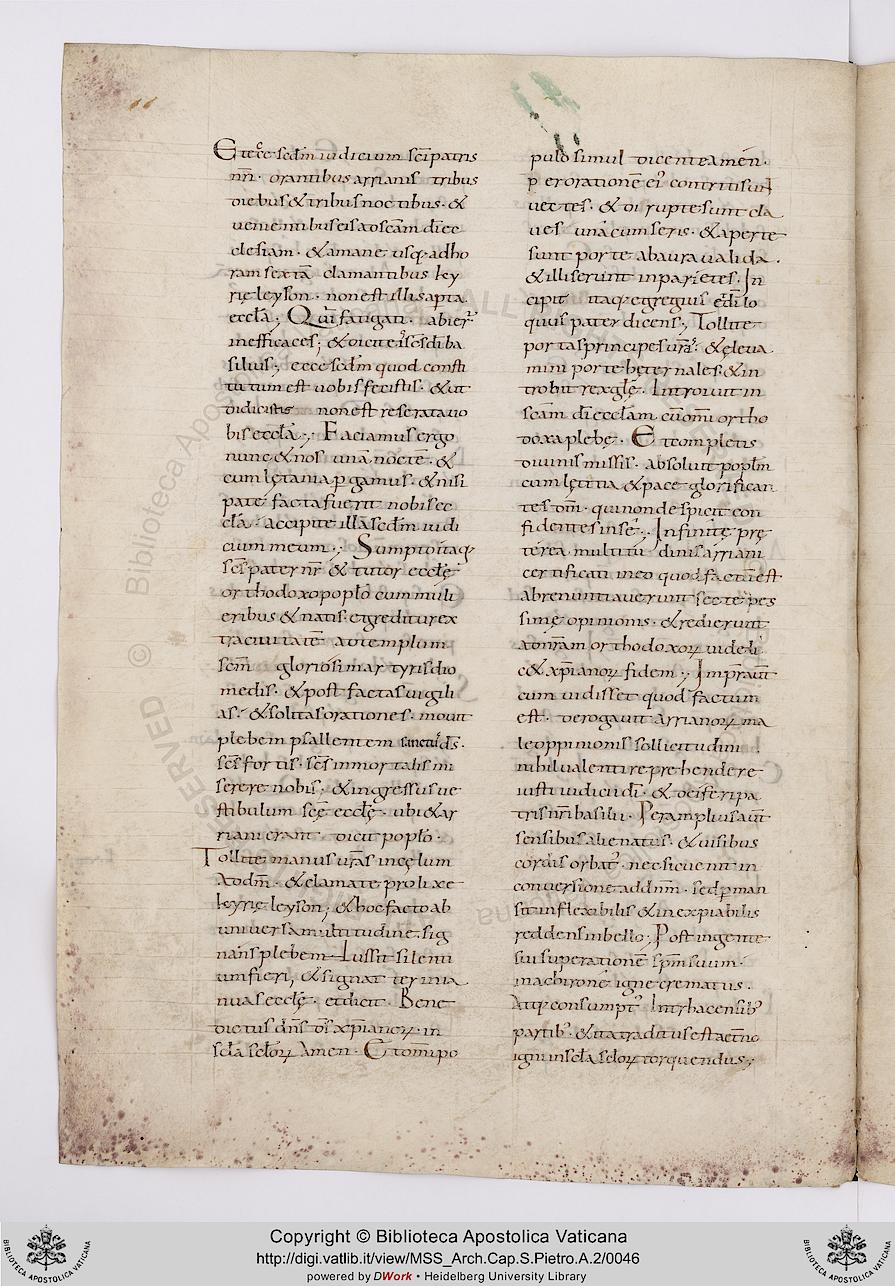 Et ecce scdm iudicium sci patris
nri · orantibus arrianis tribus
diebus & tribus noctibus · &
uenientibus eis ad scam di ec
clesiam · & a mane usq· ad ho
ram sextā clamantibus ky
rię leyson · non est illis aperta
eccla · Qui fatigati · abier
inefficaces ; & dicit eis scs di ba
silius ; ecce scdm quod consti
tutum est uobis fecistis · & ut
didicistis non est reserata uo
bis eccla ·; Faciamus ergo
nunc & nos unā noctē · &
cum lętania p gamus · & nisi
patefacta fuerit nobis ec
cla · accipite illā scdm iudi
cium meum ·; Sumpto itaq·
scs pater nr & tutor ecclę
orthodoxo poplo cum muli
eribus & natis · egreditur ex
tra ciuitatē ad templum
scm gloriosi martyris dio
medis · & post factas uigili
as · & solitas orationes · mouit
plebem psallentem sanctus ds ·
scs fortis · scs inmortalis mi
serere nobis ; & ingressus ue
stibulum scę ecclę · ubi & ar
riani erant dicit poplo ·
Tollite manus uras in cęlum
ad dm · & clamate prolixe
kyrię leyson ; & hoc facto ab
uniuersa multitudine · sig
nans plebem Iussit silenti
um fieri ; & signat ter ia
nuas ecclę · et dicit · Bene
dictus dns ds xpianorum · in
scla sclorum Amen · Et omi po
pulo simul dicente amen ·
p er orationē ei contriti sunt
uectes · & diruptę sunt cla
ues una cum seris · & apertę
sunt portę ab aura ualida ·
& illiserunt in parietes · In
cipit itaq· egregius & di lo
quus pater dicens ; Tollite
portas principes uras · & eleua
mini portę hęternales · & in
troibit rex glę · Introiuit in
scam di ecclam cū omi ortho
doxa plebe · Et completis
diuinis missis · absoluit poplm
cum lętitia & pace glorifican
tes dm · qui non despicit con
fidentes in se ·; Infinitę prę
terea multitudinis arriani
certificati in eo quod factū est
abrenuntiauerunt sectę pes
simę opinionis · & redierunt
ad nram orthodoxorum uideli
c& xpianorum fidem ; Impr aut
cum uidisset quod factum
est · derogauit arrianorum ma
lę oppinionis sollicitudini ·
nihil ualenti reprehendere
iusti iudicii di · & deiferi pa
tris nri basilii · Per amplius aut
sensibus alienatus · & uisibus
cordis orbat · nec sic uenit in
conuersione ad dnm · sed perman
sit inflexibilis & inexpiabilis
reddens in bello ; Post ingente
sui superationē spm suum ·
in achironę igne crematus ·
Atq· consumpt Intr hac en sib
partib · & ita traditus est aetno
igni in scla sclorum torquendus ;
Copyright © Biblioteca Apostolica Vaticana
http://digi.vatlib.it/view/MSS_Arch.Cap.S.Pietro.A.2/0046
powered by DWork • Heidelberg University Library